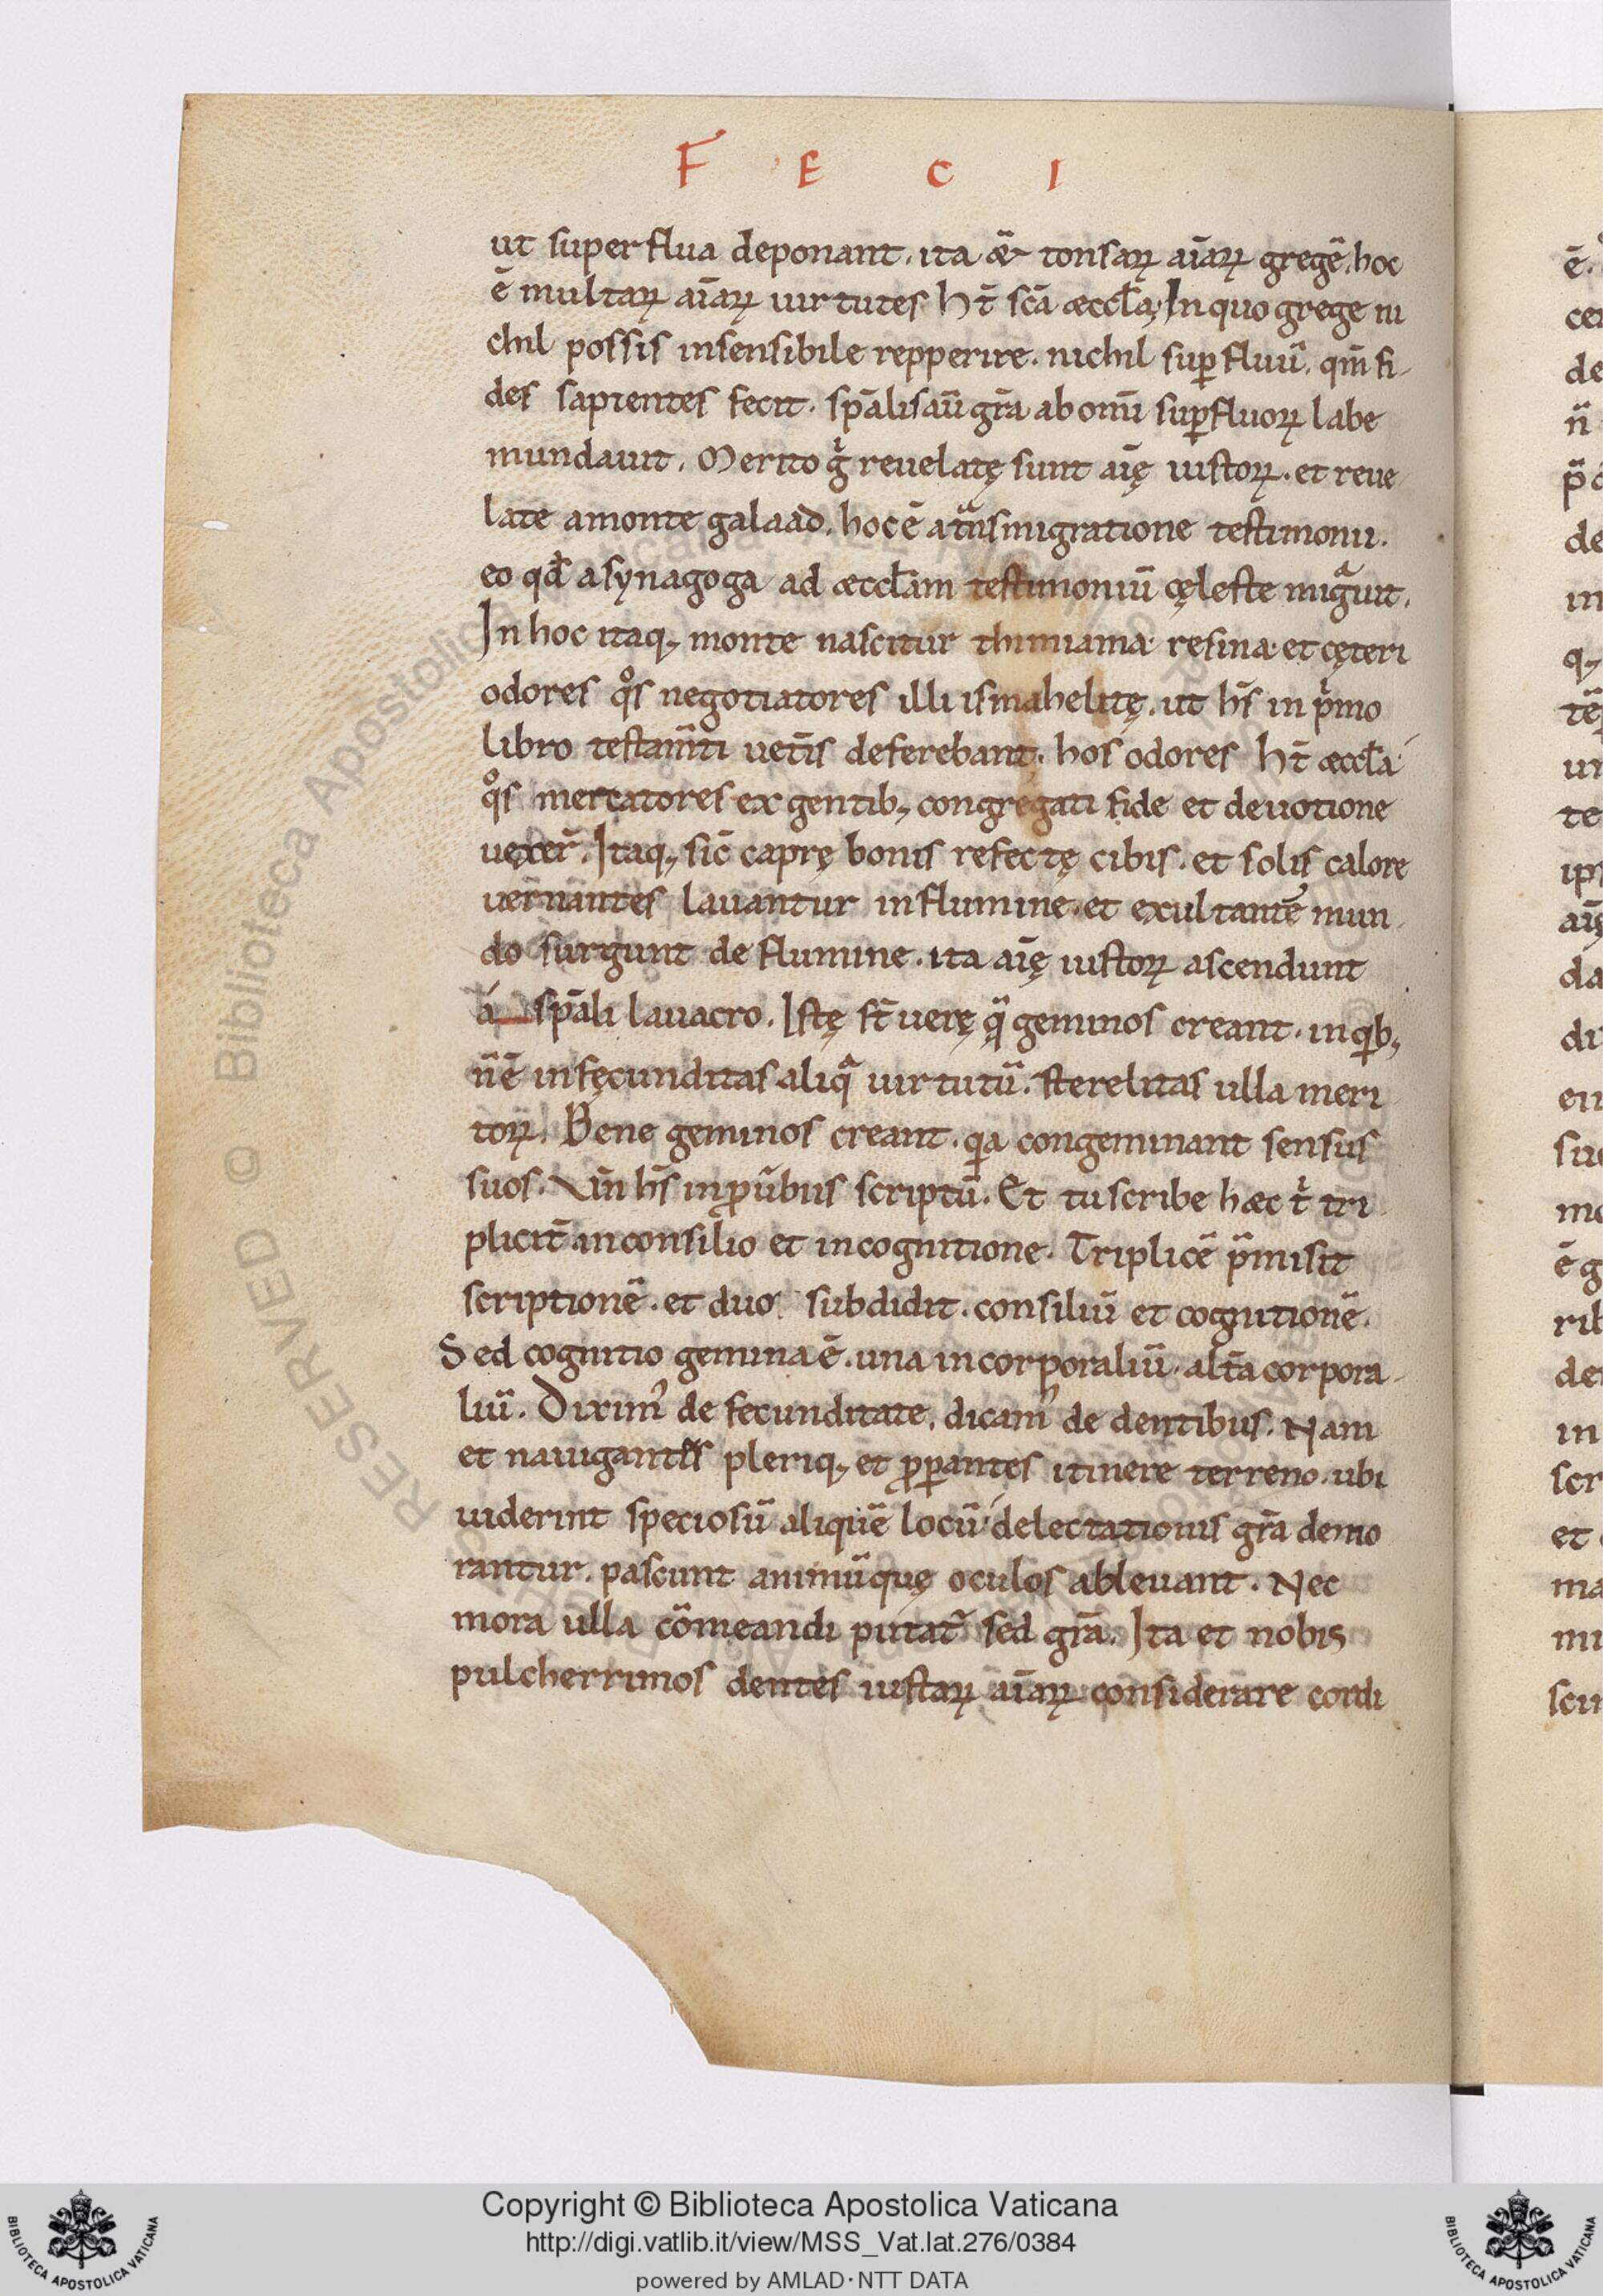 F E C I
ut superflua deponant. ita &̄ tonsaꝝ aīaꝝ gregē. hoc
ē multaꝝ aīaꝝ uirtutes ht̄ sc̄a æccl̄a; In quo grege ni
chil possis insensibile repperire. nichil suꝑfluū. qm̄ fi-
des sapientes fecit. sp̄alis aū gr̄a ab om̄i suꝑfluoꝝ labe
mundauit. Merito gͥ reuelatę sunt aīę iustoꝝ. et reue
late a monte galaad. hoc ē a tͣnsmigratione testimonii.
eo qd̄ a synagoga ad æccl̄am testimoniū cęleste migͣuit.
In hoc itaq; monte nascitur thimiama resina et cęteri
odores qͦs negotiatores illi ismahelitę. ut hs̄ in pͥmo
libro testam̄ti uet̄is deferebant. hos odores ht̄ æccl̄a
qͦs mercatores ex gentib; congregati fide et deuotione
uexer̄. Itaq; sic̄ caprę bonis refectę cibis. et solis calore
uernantes lauantur in flumine. et exultantē mun
do surgunt de flumine. ita aīę iustoꝝ ascendunt
á sp̄ali lauacro. Istę st̄ uerę qͣ geminos creant. in qͥb;
n̄ ē infęcunditas aliqͣ uirtutū. sterelitas ulla meri
toꝝ. Bene geminos creant. qͥa congeminant sensus
suos. Vn̄ hs̄ in ꝓuībus scriptū. Et tu scribe hæc tͥ tri
plicit̄ in consilio et in cognitione. Triplicē p̄misit
scriptionē. et duo subdidit. consiliū et cognitionē.
Sed cognitio gemina ē. una incorporaliū. alt̄a corpora-
liū. Diximꝰ de fecunditate. dicamꝰ de dentibus. Nam
et nauigantes pleriq; et ꝓꝑantes itinere terreno. ubi
uiderint speciosū aliquē locū delectationis gr̄a demo
rantur. pascunt animūquę oculos ableuant. Nec
mora ulla cōmeandi putat̄ sed gr̄a. Ita et nobis
pulcherrimos dentes iustaꝝ aīaꝝ considerare cordi
Copyright © Biblioteca Apostolica Vaticana
http://digi.vatlib.it/view/MSS_Vat.lat.276/0384
powered by AMLAD·NTT DATA